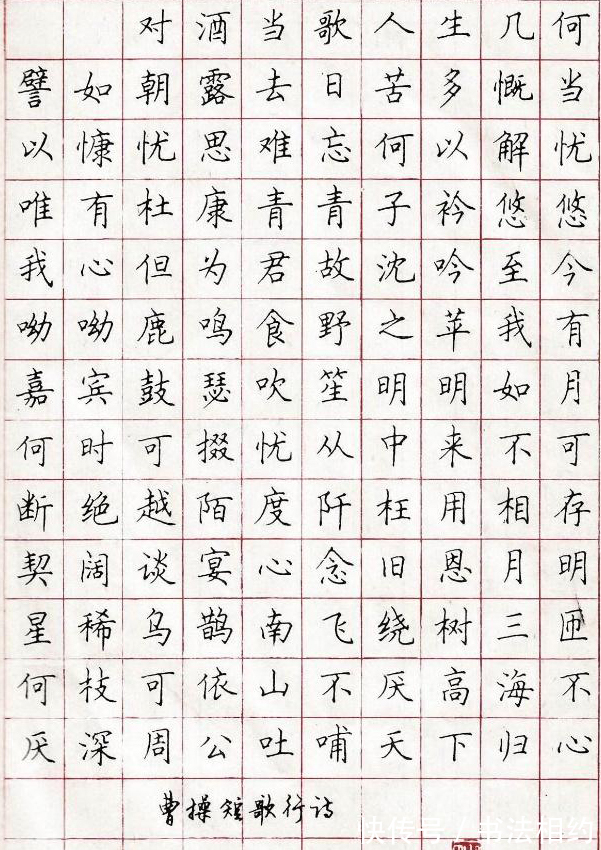 对酒当歌人生几何
譬如朝露去日苦多慨当
以慷忧思难忘何以解忧
唯有杜康青青子衿悠悠
我心但为君故沈吟至今
呦呦鹿鸣食野之苹我有
嘉宾鼓瑟吹笙明明如月
何时可掇忧从中来不可
断绝越陌度阡枉用相存
契阔谈宴心念旧恩月明
星稀乌鹊南飞绕树三匝
何枝可依山不厌高海不
厌深周公吐哺天下归心
曹操短歌行诗
快传号/书法相约